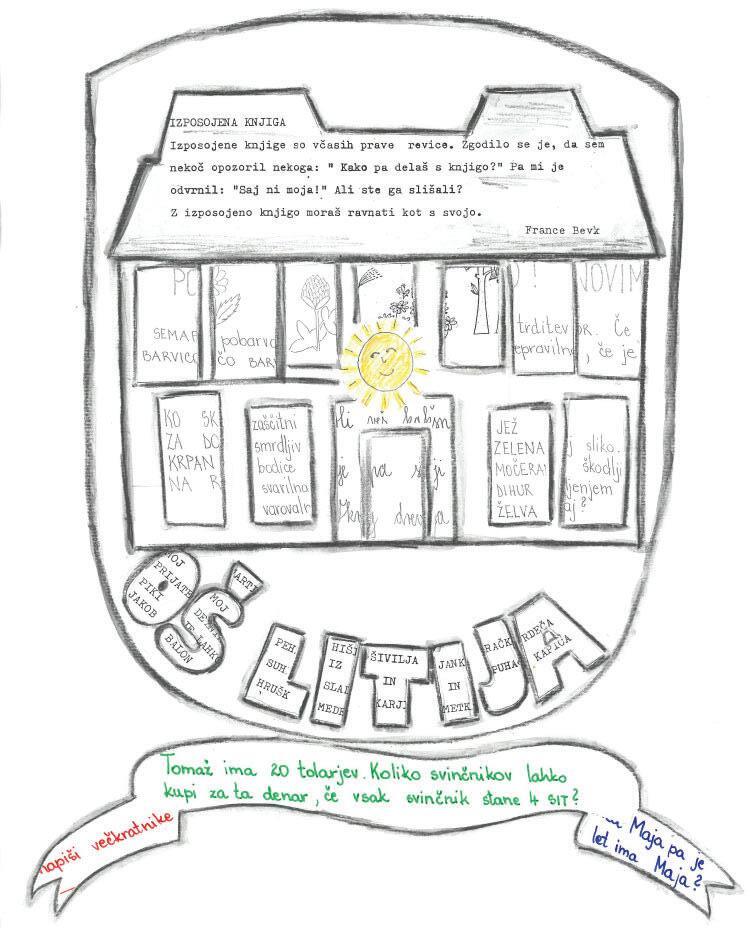 IZPOSOJENA KNJIGA
Izposojene knjige so včasih prave revice. Zgodilo se je, da sem
nekoč opozoril nekoga: " Kako pa delaš s knjigo?" Pa mi je
odvrnil: "Saj ni moja!" Ali ste ga slišali?
Z izposojeno knjigo moraš ravnati kot s svojo.
France Bevk
PO
SEMAF
BARVICO
pobarva
ČO BAR
O!
trditev
epravilne
JOVIM
OR. Če
, če je
KO SK
ZA DO
KRPAN
NA R
zaščitni
smrdljiv
bodice
svarilna
varovaln
pa
JEŽ
ZELENA
MOČERA
DIHUR
ŽELVA
j sliko.
škodlji
ljenjem
aj?
OŠ LITIJA
MOJ
PRIJATE
PIKI
JAKOB
MARTI
MOJ
DEŽNIK
JE LAHKO
BALON
PEH
SUH
HRUŠK
HIŠI
IZ
SLAD
MEDE
ŠIVILJA
IN
KARJI
JANK
IN
METK
RAČK
PUHA
RDEČA
KAPICA
Tomaž ima 20 tolarjev. Koliko svinčnikov lahko
kupi za ta denar, če vsak svinčnik stane 4 SIT?
napiši večkratnike
Maja pa je
let ima Maja?